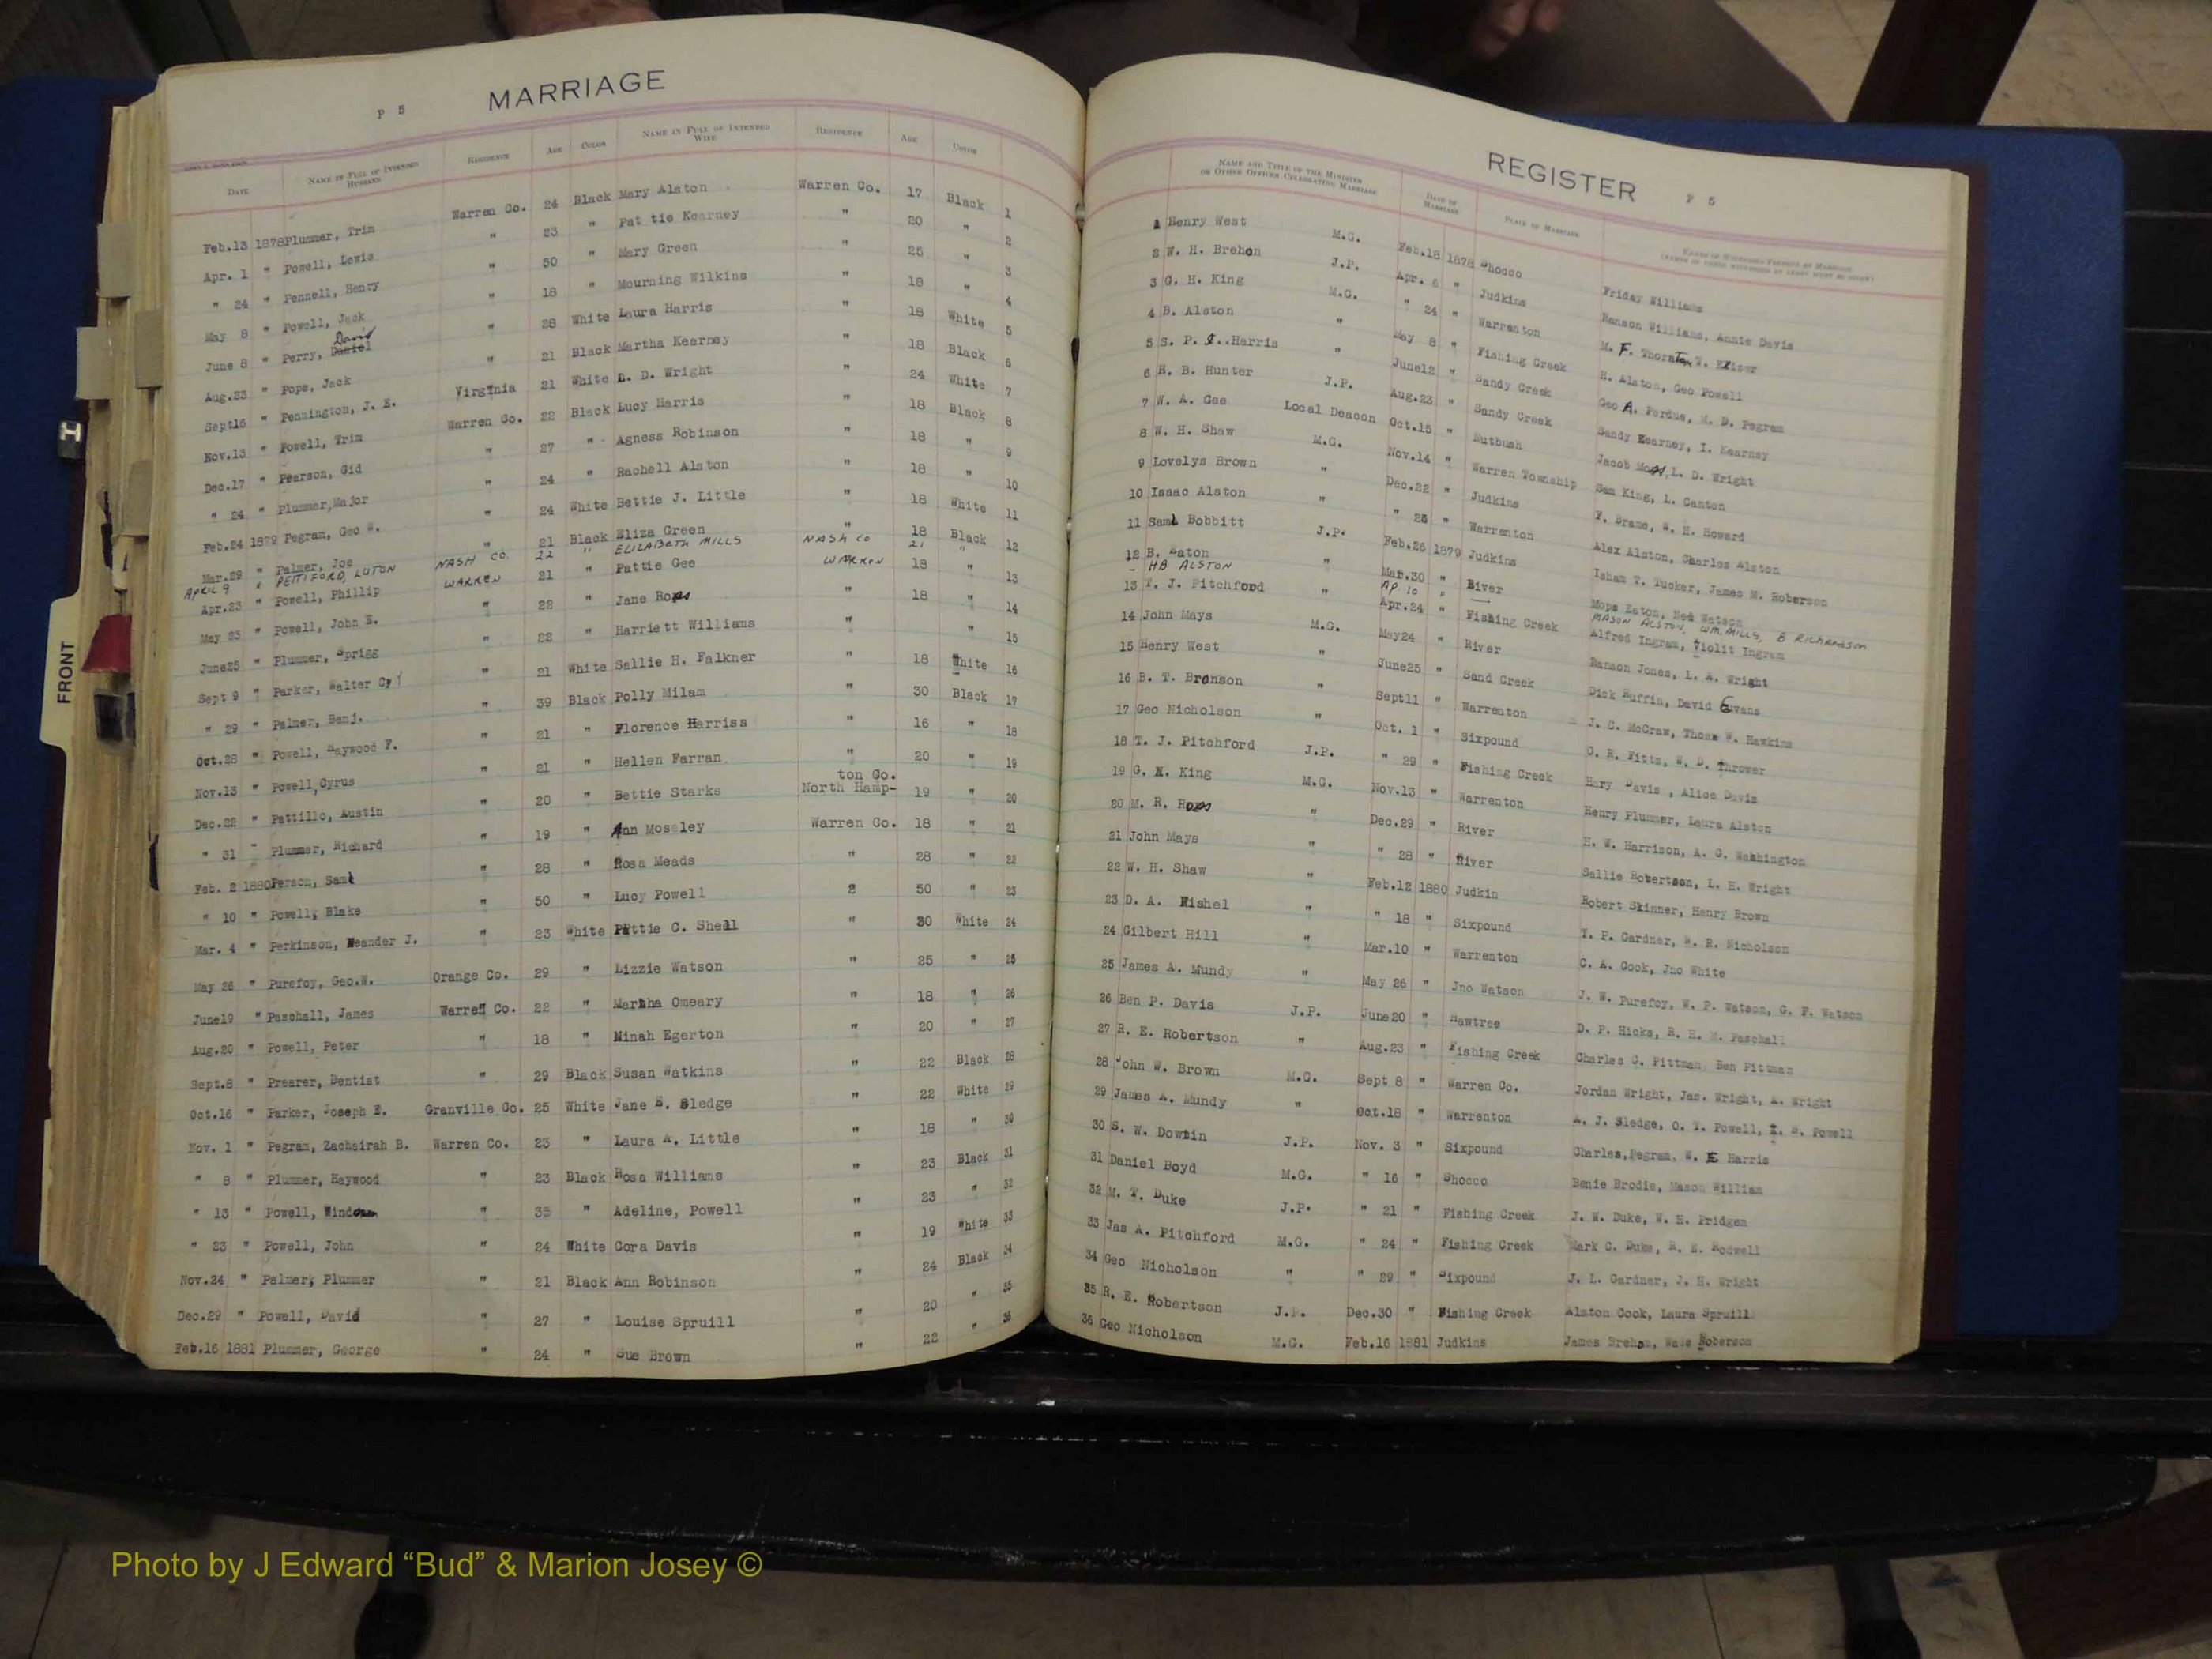 P 5 MARRIAGE
DATE NAME IN FULL OF INTENDED HUSBAND RESIDENCE AGE COLOR NAME IN FULL OF INTENDED WIFE RESIDENCE AGE COLOR
Feb.13 1878 Plummer, Trim Warren Co. 24 Black Mary Alston Warren Co. 17 Black 1
Apr. 1 " Powell, Lewis " 23 " Pattie Kearney " 20 " 2
" 24 " Pennell, Henry " 50 " Mary Green " 25 " 3
May 8 " Powell, Jack " 18 " Mourning Wilkins " 18 " 4
David
June 8 " Perry, Daniel " 28 White Laura Harris " 18 White 5
Aug.23 " Pope, Jack " 21 Black Martha Kearney " 18 Black 6
Sept16 " Pennington, J. E. Virginia 21 White D. Wright " 24 White 7
Nov.13 " Powell, Trim Warren Co. 22 Black Lucy Harris " 18 Black 8
Dec.17 " Pearson, Gid " 27 " Agness Robinson " 18 " 9
" 24 " Plummer,Major " 24 " Rachell Alston " 18 " 10
Feb.24 1879 Pegram, Geo W. " 24 White Bettie J. Little " 18 White 11
Mar.29 " Palmer, Joe " 21 Black Eliza Green " 18 Black 12
APRIL 9 " PETTIFORD, LUTON NASH CO. 22 " ELIZABETH MILLS NASH CO 21 "
Apr.23 " Powell, Phillip WARREN 21 " Pattie Gee WARREN 18 " 13
May 23 " Powell, John E. " 22 " Jane " 18 " 14
June25 " Plummer, Sprigg " 22 " Harriett Williams " " 15
Sept 9 " Parker, Walter C " 21 White Sallie H. Falkner " 18 White 16
" 29 " Palmer, Benj. " 39 Black Polly Milam " 30 Black 17
Oct.28 " Powell, Haywood F. " 21 " Florence Harriss " 16 " 18
Nov.13 " Powell,Cyrus " 21 " Hellen Farran " 20 " 19
ton Co.
Dec.22 " Pattillo, Austin " 20 " Bettie Starks North Hamp- 19 " 20
" 31 " Plummer, Richard " 19 " Ann Moseley Warren Co. 18 " 21
Feb. 2 1880 Person, Saml " 28 " Rosa Meads " 28 " 22
" 10 " Powell, Blake " 50 " Lucy Powell 50 " 23
Mar. 4 " Perkinson, Neander J. " 23 White Pattie C. Shell " 30 White 24
May 26 " Purefoy, Geo.W. Orange Co. 29 " Lizzie Watson " 25 " 25
June19 " Paschall, James Warren Co. 22 " Martha Omeary " 18 " 26
Aug.20 " Powell, Peter " 18 " Minah Egerton " 20 " 27
Sept.8 " Prearer, Dentist " 29 Black Susan Watkins " 22 Black 28
Oct.16 " Parker, Joseph E. Granville Co. 25 White Jane E. Sledge " 22 White 29
Nov. 1 " Pegram, Zachairah B. Warren Co. 23 " Laura A. Little " 18 " 30
" 8 " Plummer, Haywood " 23 Black Rosa Williams " 23 Black 31
" 13 " Powell, " 35 " Adeline, Powell " 23 " 32
" 23 " Powell, John " 24 White Cora Davis " 19 White 33
Nov.24 " Palmer, Plummer " 21 Black Ann Robinson " 24 Black 34
Dec.29 " Powell, David " 27 " Louise Spruill " 20 " 35
Feb.16 1881 Plummer, George " 24 " Sue Brown " 22 " 36
REGISTER P 5
NAME AND TITLE OF THE MINISTER OR OTHER OFFICER CELEBRATING MARRIAGE DATE OF MARRIAGE PLACE OF MARRIAGE NAMES OF WITNESSES PRESENT AT MARRIAGE
1 Henry West M.G. Feb.18 1878 Shocco Friday Williams
2 W. H. Brehon J.P. Apr. 6 " Judkins Ranson Williams, Annie Davis
3 G. H. King M.G. " 24 " Warrenton M. F. Thornton, T.
4 B. Alston " May 8 " Fishing Creek E. Alston, Geo Powell
5 S. P. J..Harris " June12 " Sandy Creek Geo A. Perdue, M. D. Pegram
6 H. B. Hunter J.P. Aug.23 " Sandy Creek Sandy Kearney, I. Kearney
7 W. A. Gee Local Deacon Oct.15 " Nutbush Jacob L. D. Wright
8 W. H. Shaw M.G. Nov.14 " Warren Township Sam King, L. Canton
9 Lovelys Brown " Dec.22 " Judkins F. Brame, W. H. Howard
10 Isaac Alston " " 26 " Warrenton Alex Alston, Charles Alston
11 Saml Bobbitt J.P. Feb.26 1879 Judkins Isham T. Tucker, James M. Roberson
12 B. Eaton " Mar.30 " River Mops Eaton, Ned Watson
HB ALSTON AP 10 " MASON ALSTON, WM. MILLS, B RICHARDSON
13 T. J. Pitchford " Apr.24 " Fishing Creek Alfred Ingram, Violit Ingram
14 John Mays M.G. May24 " River Ranson Jones, L. A. Wright
15 Henry West " June25 " Sand Creek Dick Ruffin, David Evans
16 B. T. Bronson " Sept11 " Warrenton J. C. McCraw, Thos W. Hawkins
17 Geo Nicholson " Oct. 1 " Sixpound O. R. Fitts, W. D. Thrower
18 T. J. Pitchford J.P. " 29 " Fishing Creek Hary Davis , Alice Davis
19 G. H. King M.G. Nov.13 " Warrenton Henry Plummer, Laura Alston
20 M. R. " Dec.29 " River H. W. Harrison, A. G. Washington
21 John Mays " " 28 " River Sallie Robertson, L. H. Wright
22 W. H. Shaw " Feb.12 1880 Judkin Robert Skinner, Henry Brown
23 D. A. Fishel " " 18 " Sixpound T. P. Gardner, W. R. Nicholson
24 Gilbert Hill " Mar.10 " Warrenton C. A. Cook, Jno White
25 James A. Mundy " May 26 " Jno Watson J. W. Purefoy, W. P. Watson, G. F. Watson
26 Ben P. Davis J.P. June20 " Hawtree D. P. Hicks, R. H. W. Paschall
27 R. E. Robertson " Aug.23 " Fishing Creek Charles C. Pittman, Ben Pittman
28 John W. Brown M.G. Sept 8 " Warren Co. Jordan Wright, Jas. Wright, A. Wright
29 James A. Mundy " Oct.18 " Warrenton A. J. Sledge, O. T. Powell, I. S. Powell
30 S. W. Dowtin J.P. Nov. 3 " Sixpound Charles,Pegram, W. E Harris
31 Daniel Boyd M.G. " 16 " Shocco Benie Brodie, Mason William
32 M. T. Duke J.P. " 21 " Fishing Creek J. W. Duke, W. H. Pridgen
33 Jas A. Pitchford M.G. " 24 " Fishing Creek Mark C. Duke, R. E. Rodwell
34 Geo Nicholson " " 29 " Sixpound J. L. Gardner, J. H. Wright
35 R. E. Robertson J.P. Dec.30 " Fishing Creek Alston Cook, Laura Spruill
36 Geo Nicholson M.G. Feb.16 1881 Judkins James Brehon, Wade Roberson
FRONT
H
Photo by J Edward “Bud” & Marion Josey ©